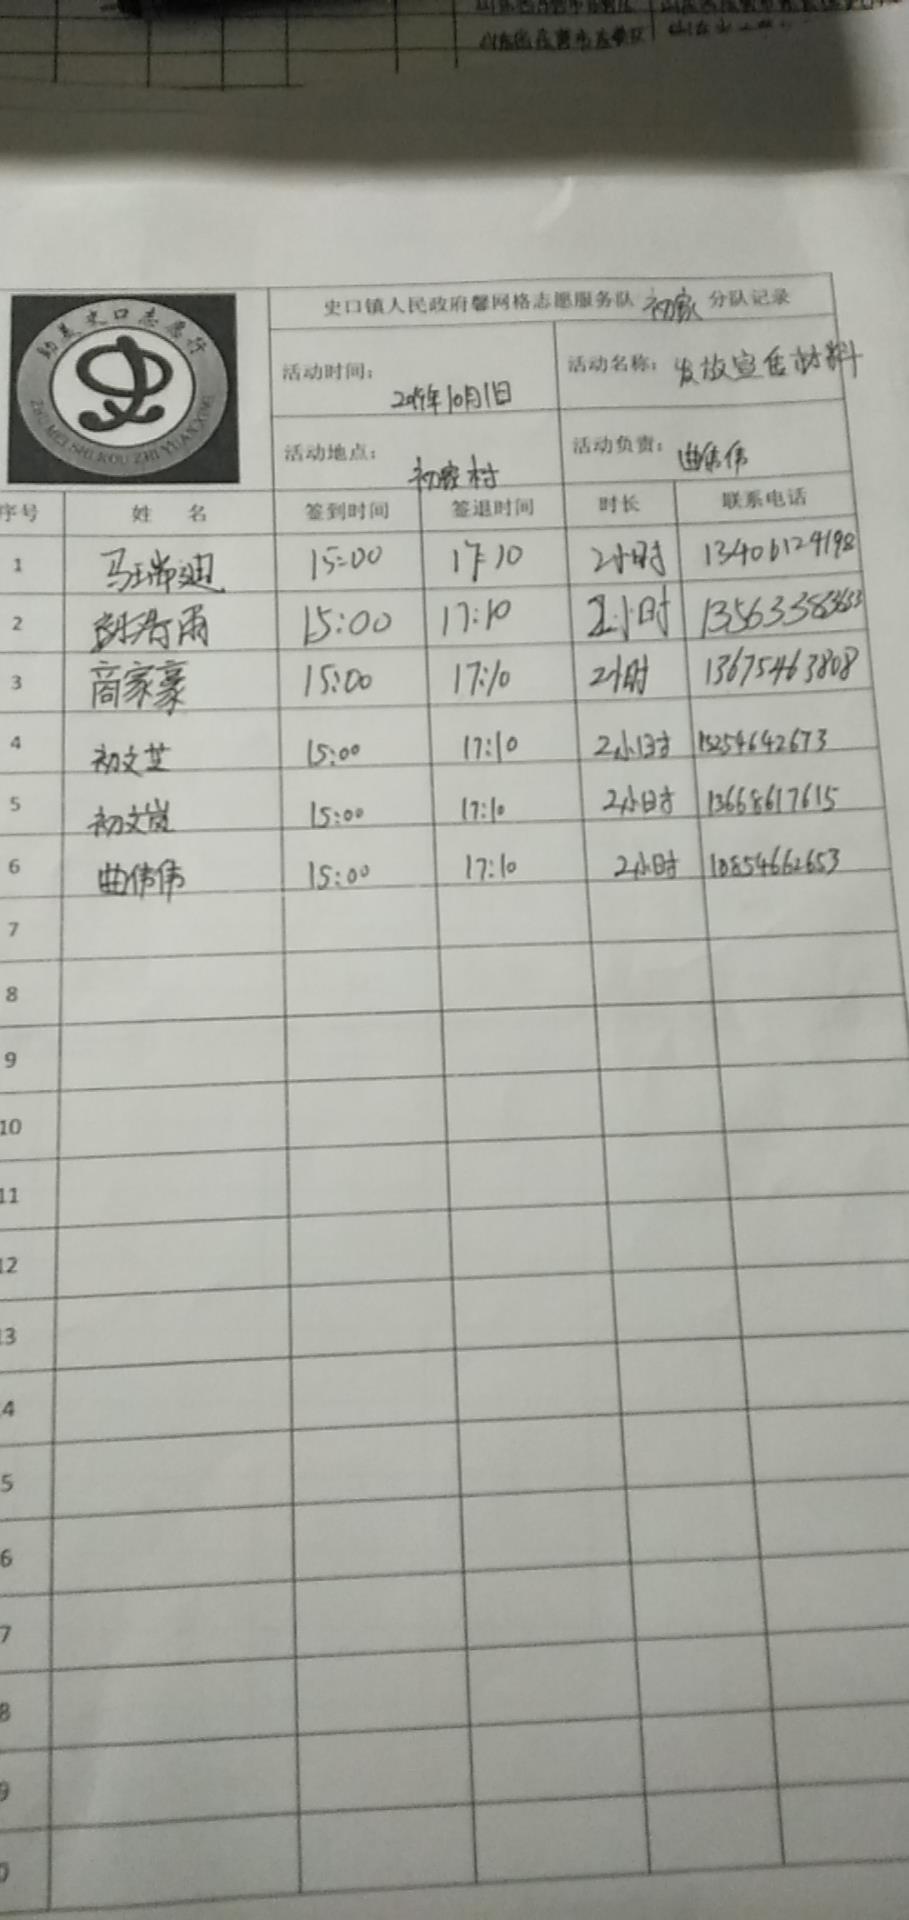 助美史口志愿行
ZHU MEI SHI KOU ZHI YUAN XING
史口镇人民政府馨网格志愿服务队 初家 分队记录
活动时间: 2019年10月1日
活动名称: 发放宣传材料
活动地点: 初家村
活动负责: 曲伟伟
序号 姓 名 签到时间 签退时间 时长 联系电话
1 马瑞迪 15:00 17:10 2小时 13406124198
2 15:00 17:10 2小时
3 商家豪 15:00 17:10 2小时 13675463808
4 初文芝 15:00 17:10 2小时 15254642673
5 初文岚 15:00 17:10 2小时 13668617615
6 曲伟伟 15:00 17:10 2小时 10854662653
7
8
9
10
11
12
13
14
15
16
17
18
19
20